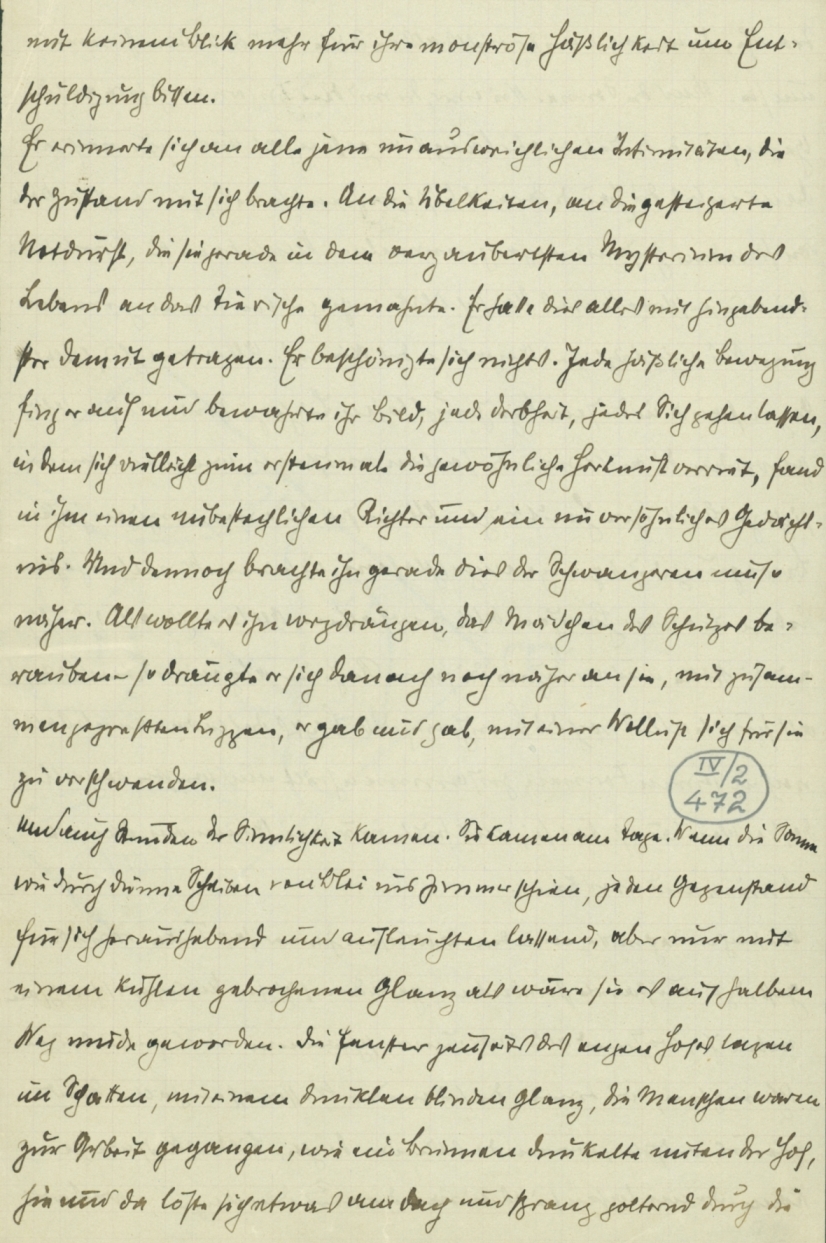 mit keinem Blick mehr für ihre monströse Häßlichkeit um Ent-
schuldigung bitten.
Er erinnerte sich an alle jene unausweichlichen Intimitäten, die
der Zustand mit sich brachte. An die Übelkeiten, an die gesteigerte
Notdurft, die sie gerade in dem verzaubertsten Mysterium des
Lebens an das Tierische gemahnte. Er hatte dies alles mit hingebend-
ster Demut getragen. Er beschönigte sich nichts. Jede häßliche Bewegung
fing er auf und bewahrte ihr Bild, jede Derbheit, jedes Sichgehenlassen,
in dem sich vielleicht zum erstenmale die gewöhnliche Herkunft verriet, fand
in ihm einen unbestechlichen Richter und ein unversöhnliches Gedächt-
nis. Und dennoch brachte ihn gerade dies der Schwangeren umso
näher. Als wollte es ihn wegdrängen, das Mädchen des Schutzes be-
rauben – so drängte er sich danach noch näher an sie, mit zusam-
mengepreßten Lippen, er gab und gab, mit einer Wollust sich für sie
zu verschwenden.
IV/2
472
Und auch Stunden der Sinnlichkeit kamen. Sie kamen am Tage. Wenn die Sonne
wie durch dünne Scheiben von Blei ins Zimmer schien, jeden Gegenstand
für sich heraushebend und aufleuchten lassend, aber nur mit
einem kühlen gebrochenen Glanz als wäre sie es auf halbem
Weg müde geworden. Die Fenster jenseits des engen Hofes lagen
im Schatten, mit einem dunklen blinden Glanz, die Menschen waren
zur Arbeit gegangen, wie ein Brunnen dunkelte unten der Hof,
hie und da löste sich etwas am Dach und sprang polternd durch die